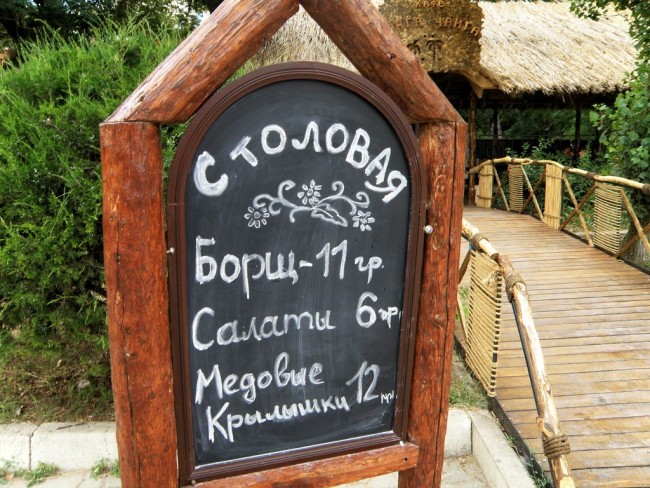 СТОЛОВАЯ
Борщ-11 гр.
Салаты 6 гр.
Медовые
Крылышки 12 грн